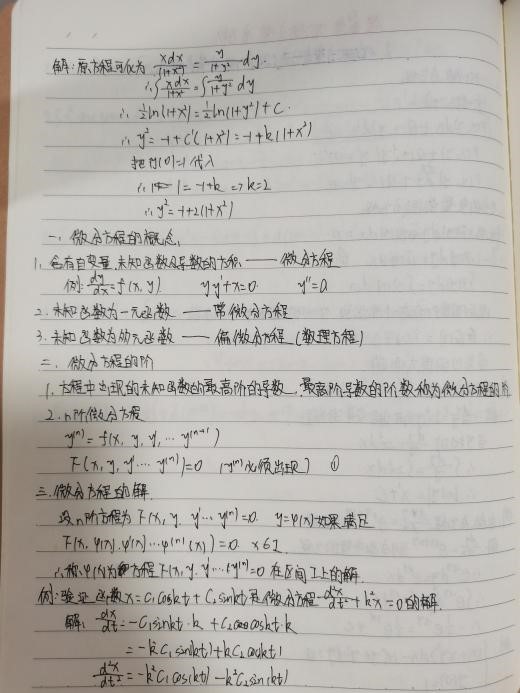 解:原方程可化为 xdx/(1+x²) = y/(1+y²) dy.
∴∫xdx/(1+x²) = ∫y/(1+y²) dy
∴ ½ln(1+x²)=½ln(1+y²)+C.
∴ y²=-1+C'(1+x²)=-1+k(1+x²)
把y(0)=1代入
∴ 1=-1+k => k=2
∴ y²=-1+2(1+x²)
一、微分方程的概念.
1. 含有自变量.未知函数及导数的方程.——微分方程
例: dy/dx=f(x,y) y·y'+x=0. y''=a
2. 未知函数为一元函数 —— 常微分方程
3. 未知函数为 元函数 —— 偏微分方程 (数理方程)
二、微分方程的阶
1. 方程中出现的未知函数的最高阶的导数.最高阶导数的阶数称为微分方程的阶
2. n阶微分方程
y⁽ⁿ⁾=f(x, y, y', … y⁽ⁿ⁻¹⁾)
F(x, y, y'… y⁽ⁿ⁾)=0 (y⁽ⁿ⁾必须出现) ①
三.微分方程的解.
设n阶方程为F(x, y. y'… y⁽ⁿ⁾)=0. y=φ(x)如果满足
F(x, φ(x). φ'(x)…φ⁽ⁿ⁾(x))=0. x∈I
∴称φ(x)为 方程F(x, y. y'… y⁽ⁿ⁾)=0 在区间I上的解.
例:验证函数x=C₁coskt+C₂sinkt是微分方程d²x/dt²+k²x=0的解.
解: dx/dt=-C₁sinkt·k+C₂coskt·k
=-kC₁sin(kt)+kC₂cos(kt)
d²x/dt²=-k²C₁cos(kt)-k²C₂sin(kt)